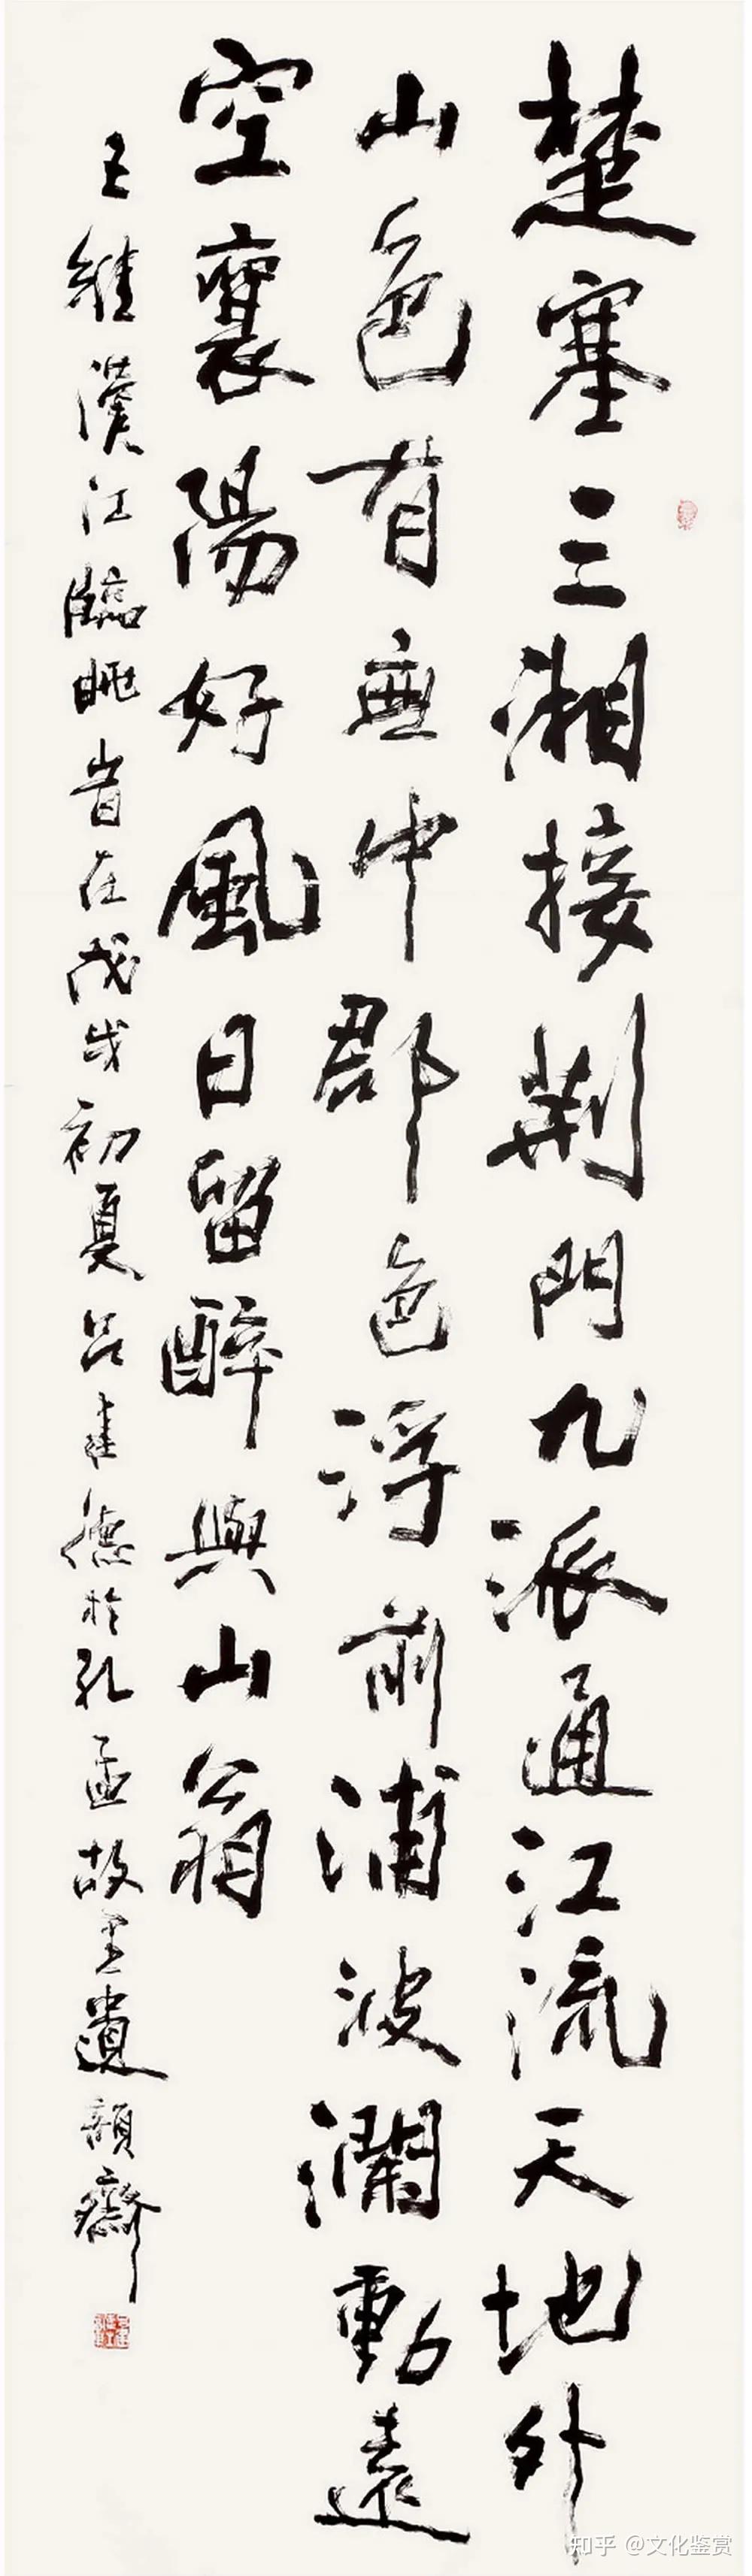 楚塞三湘接荆門九派通江流天地外
山色有無中郡色浮前浦波瀾動遠
空襄陽好風日留醉與山翁
王維漢江臨眺旹在戊戌初夏吕建德於孔孟故里遺韻齋
知乎 @文化鉴赏